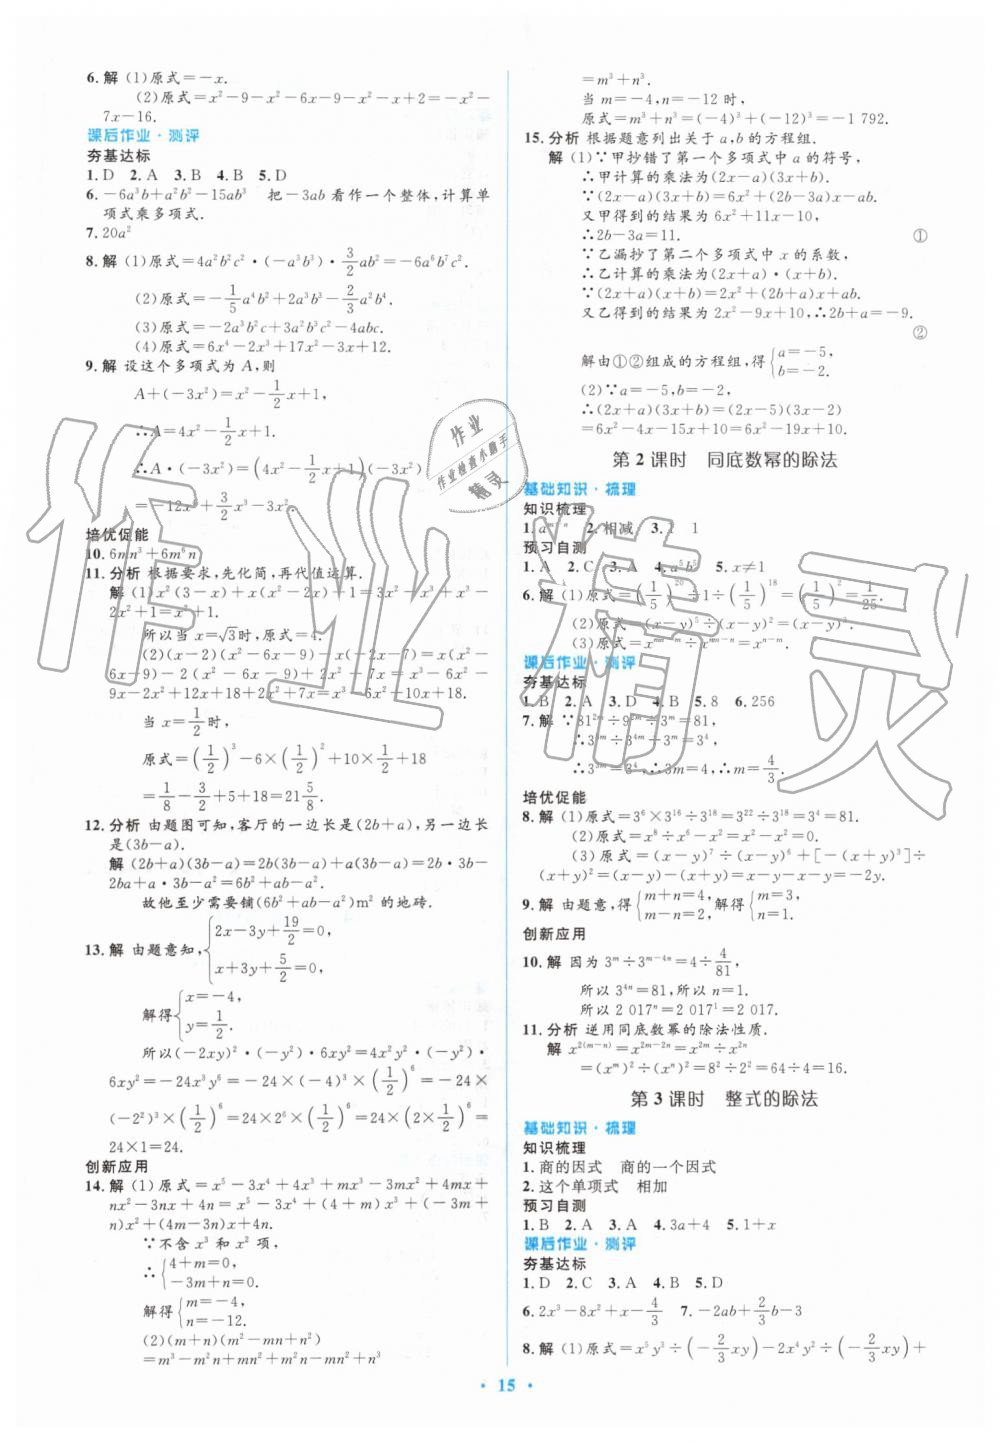 6. 解 (1)原式=-x.
(2)原式=x²-9-x²-6x-9-x²-x+2=-x²-
7x-16.
课后作业·测评
夯基达标
1. D 2. A 3. B 4. B 5. D
6. -6a³b+a²b²-15ab³ 把-3ab看作一个整体,计算单
项式乘多项式.
7. 20a²
8. 解 (1)原式=4a²b²c²·(-a³b³)·3/2ab²=-6a⁶b⁷c².
(2)原式=-1/5a⁴b²+2a³b³-2/3a²b⁴.
(3)原式=-2a³b²c+3a²b²c-4abc.
(4)原式=6x⁴-2x³+17x²-3x-4.
9. 解 设这个多项式为A,则
A+(-3x²)=x²-1/2x+1,
∴A=4x²-1/2x+1.
∴A·(-3x²)=(4x²-1/2x+1)(-3x²)
=-12x⁴+3/2x³-3x².
培优促能
10. 6mn³+6m⁶n
11. 分析 根据要求,先化简,再代值运算.
解 (1)x²(3-x)+x(x²-2x)+1=3x²-x³+
x³-2x²+1=x²+1.
所以当x=√3时,原式=4.
(2)(x-2)(x²-6x-9)-x(x²-2x-7)=x(x²-
6x-9)-2(x²-6x-9)-x³+2x²+7x=x³-6x²-
9x-2x²+12x+18+2x²+7x=x³-6x²+10x+18.
当x=1/2时,
原式=(1/2)³-6×(1/2)²+10×1/2+18
=1/8-3/2+5+18=21 5/8.
12. 分析 由题图可知,客厅的一边长是(2b+a),另一边长
是(3b-a).
解 (2b+a)(3b-a)=2b(3b-a)+a(3b-a)=2b·3b-
2ba+a·3b-a²=6b²+ab-a².
故他至少需要铺(6b²+ab-a²)m²的地砖.
13. 解 由题意知,{2x-3y+19/2=0, x+3y+5/2=0,
解得{x=-4, y=1/2.
所以(-2xy)²·(-y²)·6xy²=4x²y²·(-y²)·
6xy²=-24x³y⁶=-24×(-4)³×(1/2)⁶=-24×
(-2²)³×(1/2)⁶=24×2⁶×(1/2)⁶=24×(2×1/2)⁶=
24×1=24.
创新应用
14. 解 (1)原式=x⁵-3x⁴+4x³+mx³-3mx²+4mx+
nx²-3nx+4n=x⁵-3x⁴+(4+m)x³+(-3m+
n)x²+(4m-3n)x+4n.
∵不含x³和x²项,
∴{4+m=0, -3m+n=0.
解得{m=-4, n=-12.
(2)(m+n)(m²-mn+n²)
=m³-m²n+mn²+m²n-mn²+n³
=m³+n³.
当m=-4,n=-12时,
原式=m³+n³=(-4)³+(-12)³=-1 792.
15. 分析 根据题意列出关于a,b的方程组.
解 (1)∵甲抄错了第一个多项式中a的符号,
∴甲计算的乘法为(2x-a)(3x+b).
∵(2x-a)(3x+b)=6x²+(2b-3a)x-ab.
又甲得到的结果为6x²+11x-10,
∴2b-3a=11. ①
∵乙漏抄了第二个多项式中x的系数,
∴乙计算的乘法为(2x+a)·(x+b).
∵(2x+a)(x+b)=2x²+(2b+a)x+ab.
又乙得到的结果为2x²-9x+10,∴2b+a=-9.
②
解由①②组成的方程组,得{a=-5, b=-2.
(2)∵a=-5,b=-2.
∴(2x+a)(3x+b)=(2x-5)(3x-2)
=6x²-4x-15x+10=6x²-19x+10.
第2课时 同底数幂的除法
基础知识·梳理
知识梳理
1. aᵐ⁻ⁿ 2. 相减 3. 1 1
预习自测
1. A 2. C 3. A 4. a⁵b⁵ 5. x≠1
6. 解 (1)原式=(1/5)²⁰÷1÷(1/5)¹⁸=(1/5)²=1/25.
(2)原式=(x-y)⁵÷(x-y)²=(x-y)³.
(3)原式=xᵐⁿ⁻ᵐ÷xᵐⁿ⁻ⁿ=xⁿ⁻ᵐ.
课后作业·测评
夯基达标
1. B 2. A 3. D 4. B 5. 8 6. 256
7. 解 ∵81²ᵐ÷9²ᵐ÷3ᵐ=81,
∴3⁸ᵐ÷3⁴ᵐ÷3ᵐ=3⁴.
∴3³ᵐ=3⁴,∴3m=4,∴m=4/3.
培优促能
8. 解 (1)原式=3⁶×3¹⁶÷3¹⁸=3²²÷3¹⁸=3⁴=81.
(2)原式=x⁸÷x⁶-x²=x²-x²=0.
(3)原式=(x-y)⁷÷(x-y)⁶+[-(x+y)³]÷
(x+y)²=(x-y)-(x+y)=x-y-x-y=-2y.
9. 解 由题意,得{m+n=4, m-n=2, 解得{m=3, n=1.
创新应用
10. 解 因为3ᵐ÷3ᵐ⁻⁴ⁿ=4÷4/81,
所以3⁴ⁿ=81,所以n=1.
所以2 017ⁿ=2 017¹=2 017.
11. 分析 逆用同底数幂的除法性质.
解 x²⁽ᵐ⁻ⁿ⁾=x²ᵐ⁻²ⁿ=x²ᵐ÷x²ⁿ
=(xᵐ)²÷(xⁿ)²=8²÷2²=64÷4=16.
第3课时 整式的除法
基础知识·梳理
知识梳理
1. 商的因式 商的一个因式
2. 这个单项式 相加
预习自测
1. B 2. A 3. A 4. 3a+4 5. 1+x
课后作业·测评
夯基达标
1. D 2. C 3. A 4. B 5. D
6. 2x³-8x²+x-4/3 7. -2ab+2/3b-3
8. 解 (1)原式=x⁵y³÷(-2/3xy)-2x⁴y²÷(-2/3xy)+
· 15 ·
作业精灵
作业
作业检查小助手
精灵